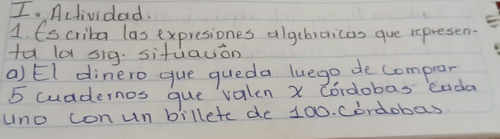 I. Actividad.
1. Escriba las expresiones algebraicas que represen-
ta la sig. situación
a) El dinero que queda luego de comprar
5 cuadernos que valen x córdobas cada
uno con un billete de 100. córdobas.